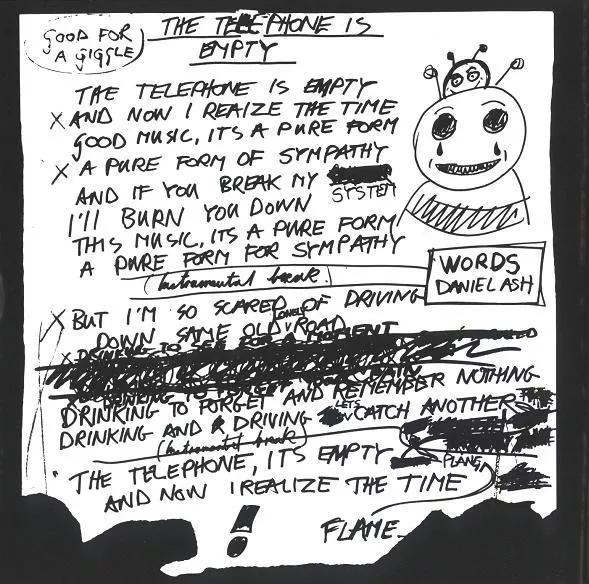 GOOD FOR
A GIGGLE
THE TELEPHONE IS
EMPTY
THE TELEPHONE IS EMPTY
X AND NOW I REAIZE THE TIME
GOOD MUSIC, ITS A PURE FORM
X A PURE FORM OF SYMPATHY
AND IF YOU BREAK MY
SYSTEM
I'll BURN YOU DOWN
THIS MUSIC, ITS A PURE FORM
A PURE FORM FOR SYMPATHY
(Instramental break.)
WORDS
DANIEL ASH
X BUT I'M SO SCARED OF DRIVING
LONELY
DOWN SAME OLD ROAD
X DRINKING TO SEE FOR A MOMENT
DRINKING TO FORGET PAIN
DRINKING TO FORGET AND REMEMBER NOTHING
LETS
DRINKING AND DRIVING CATCH ANOTHER
(Instramental break)
PLANE
THE TELEPHONE, IT'S EMPTY
AND NOW I REALIZE THE TIME
! FLAME